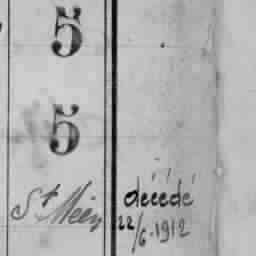 5
5
St Méen
décédé
22/6-1912